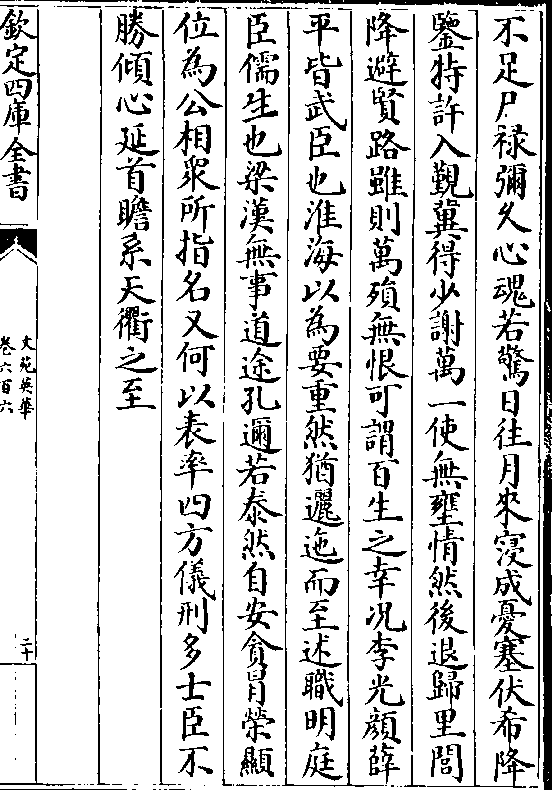 不足尸祿彌久心魂若驚日往月來寖成憂塞伏希降
鑒特許入覲冀得少謝萬一使無壅情然後退歸里閭
降避賢路雖則萬殞無恨可謂百生之幸况李光顔薛
平皆武臣也淮海以為要重然猶邐迤而至述職明庭
臣儒生也梁漢無事道途孔邇若泰然自安貪冐榮顯
位為公相衆所指名又何以表率四方儀刑多士臣不
勝傾心延首瞻系天衢之至
欽定四庫全書
文苑英華
卷六百六
二十